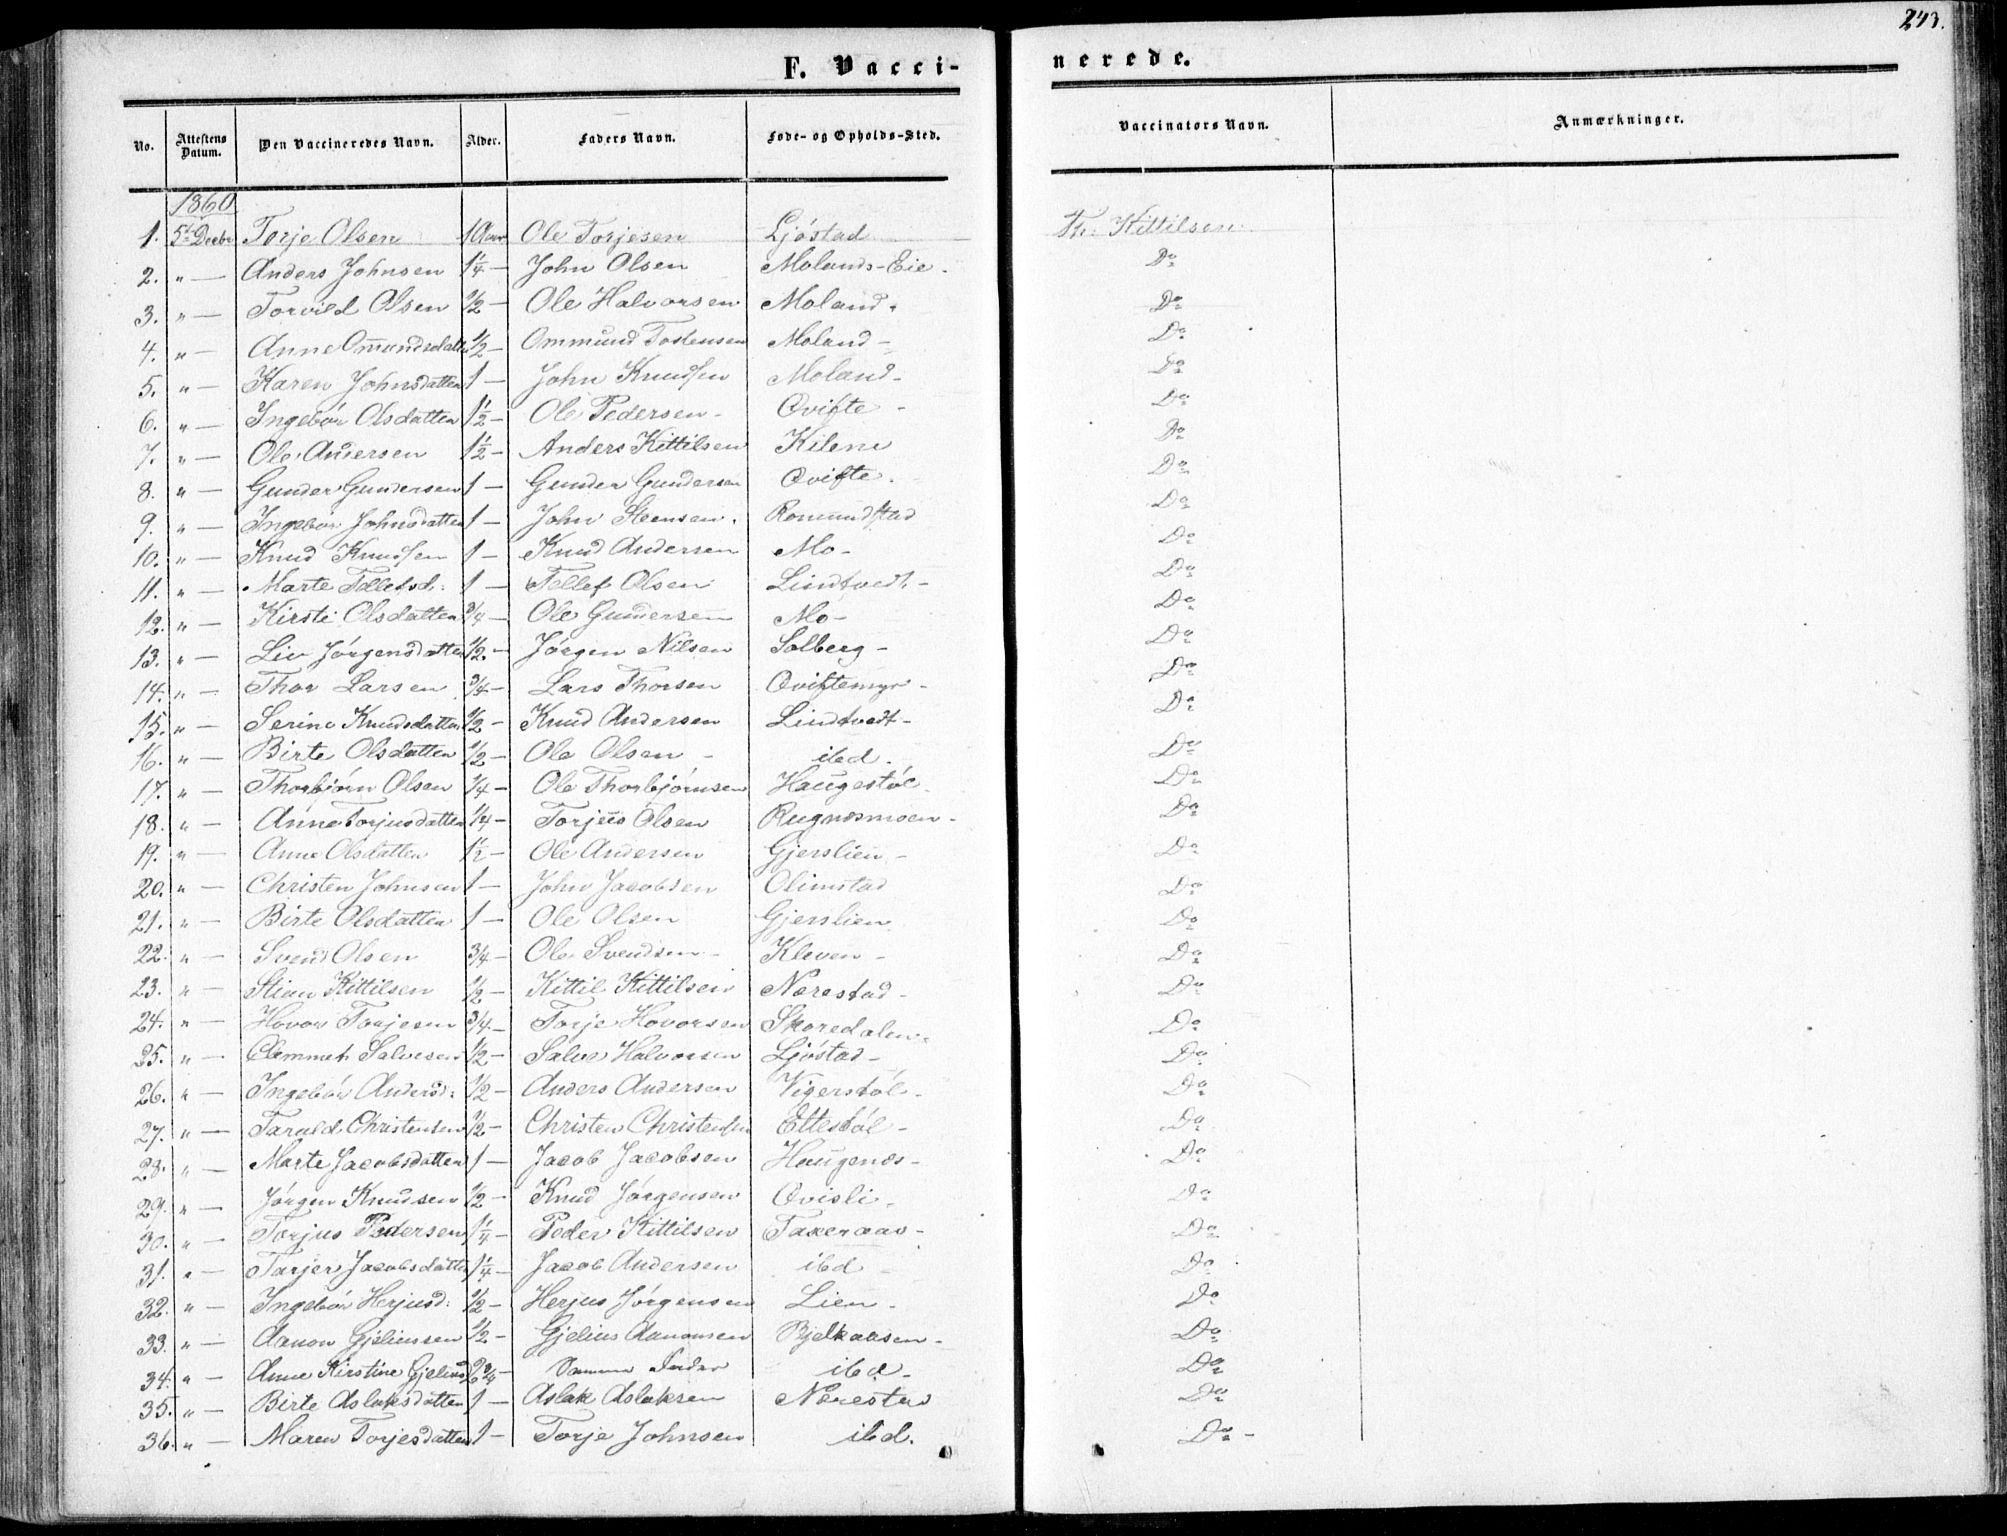 243.
F. Vacci-
nerede.
No. Attestens Datum. Den Vaccineredes Navn. Alder. Faders Navn. Føde- og Opholds-Sted. Vaccinators Navn. Anmærkninger.
1860
1. 5te Decbr Torje Olsen 1 Aar Ole Torjesen Ljøstad Kittilsen
2. " — Anders Johnsen 1 1/4 — John Olsen Molands-Eie. Do
3. " — Torvild Olsen 1/2 — Ole Halvorsen Moland. Do
4. " — Anne Omundsdatter 1/2 — Ommund Tostensen Moland - Do
5. " — Karen Johnsdatter 1 — John Knudsen Moland - Do
6. " — Ingebór Olsdatter 1 1/2 — Ole Pedersen - Qvifte - Do
7. " — Ole Andersen 1 1/2 — Anders Kittilsen Kilene Do
8. " — Gunder Gundersen 1 — Gunder Gundersen Qvifte. Do
9. " — Ingebór Johnsdatter 1 — John Steensen. Romundstad Do
10. " — Knud Knudsen 1 — Knud Andersen Mo - Do
11. " — Marte Tellefsd: 1 — Tellef Olsen Lindtvedt - Do
12. " — Kirsti Olsdatter 3/4 — Ole Gundersen Mo - Do
13. " — Liv Jørgensdatter 1/2. — Jørgen Nilsen Solberg - Do
14. " — Thor Larsen 3/4 — Lars Thorsen Qviftemyr - Do
15. " — Serine Knudsdatter 1/2 — Knud Andersen Lindtvedt - Do
16. " — Birte Olsdatter 1/2 — Ole Olsen - ibd. Do
17. " — Thorbjørn Olsen 1/4 — Ole Thorbjørnsen Haugestøl. Do
18. " — Anne Torjusdatter 1/4 — Torjus Olsen Rugnæsmoen - Do
19. " — Anne Olsdatter 1 1/2 — Ole Andersen Gjerslien - Do
20. " — Christen Johnsen 1 — John Jacobsen Olimstad Do
21. " — Birte Olsdatter 1 — Ole Olsen Gjerslien Do
22. " — Svend Olsen 3/4 — Ole Svendsen - Kleven - Do
23. " — Stian Kittilsen 1/2 — Kittil Kittilsen Nærestad - Do
24. " — Hovor Torjesen 3/4 — Torje Hovorsen Skoredalen. Do
25. " — Clemmet Salvesen 1/2 — Salve Halvorsen Ljøstad - Do
26. " — Ingebór Andersd: 1/2 — Anders Andersen Vigerstøl - Do
27. " — Tarald Christensen 1/2 — Christen Christensen Ettestøl - Do
28. " — Marte Jacobsdatter 1 — Jacob Jacobsen Haugenæs - Do
29. " — Jørgen Knudsen 1/2 — Knud Jørgensen Qvisli. Do
30. " — Torjus Pedersen 1 1/4 — Peder Kittilsen Taxeraas - Do
31. " — Tarjer Jacobsdatter 1 1/4 — Jacob Andersen ibd - Do
32. " — Ingebór Herjusd: 1/2 — Herjus Jørgensen Lien - Do
33. " — Aanon Gjeliussen 1/2 — Gjelius Aanonsen Bjelkaasen - Do
34. " — Anne Kirstine Gjeliusd 2 3/4 — Samme Fader ibd - Do
35. " — Birte Aslaksdatter 1 — Aslak Aslaksen Nærestad Do
36. " — Maren Torjesdatter 1 — Torje Johnsen ibd. Do -